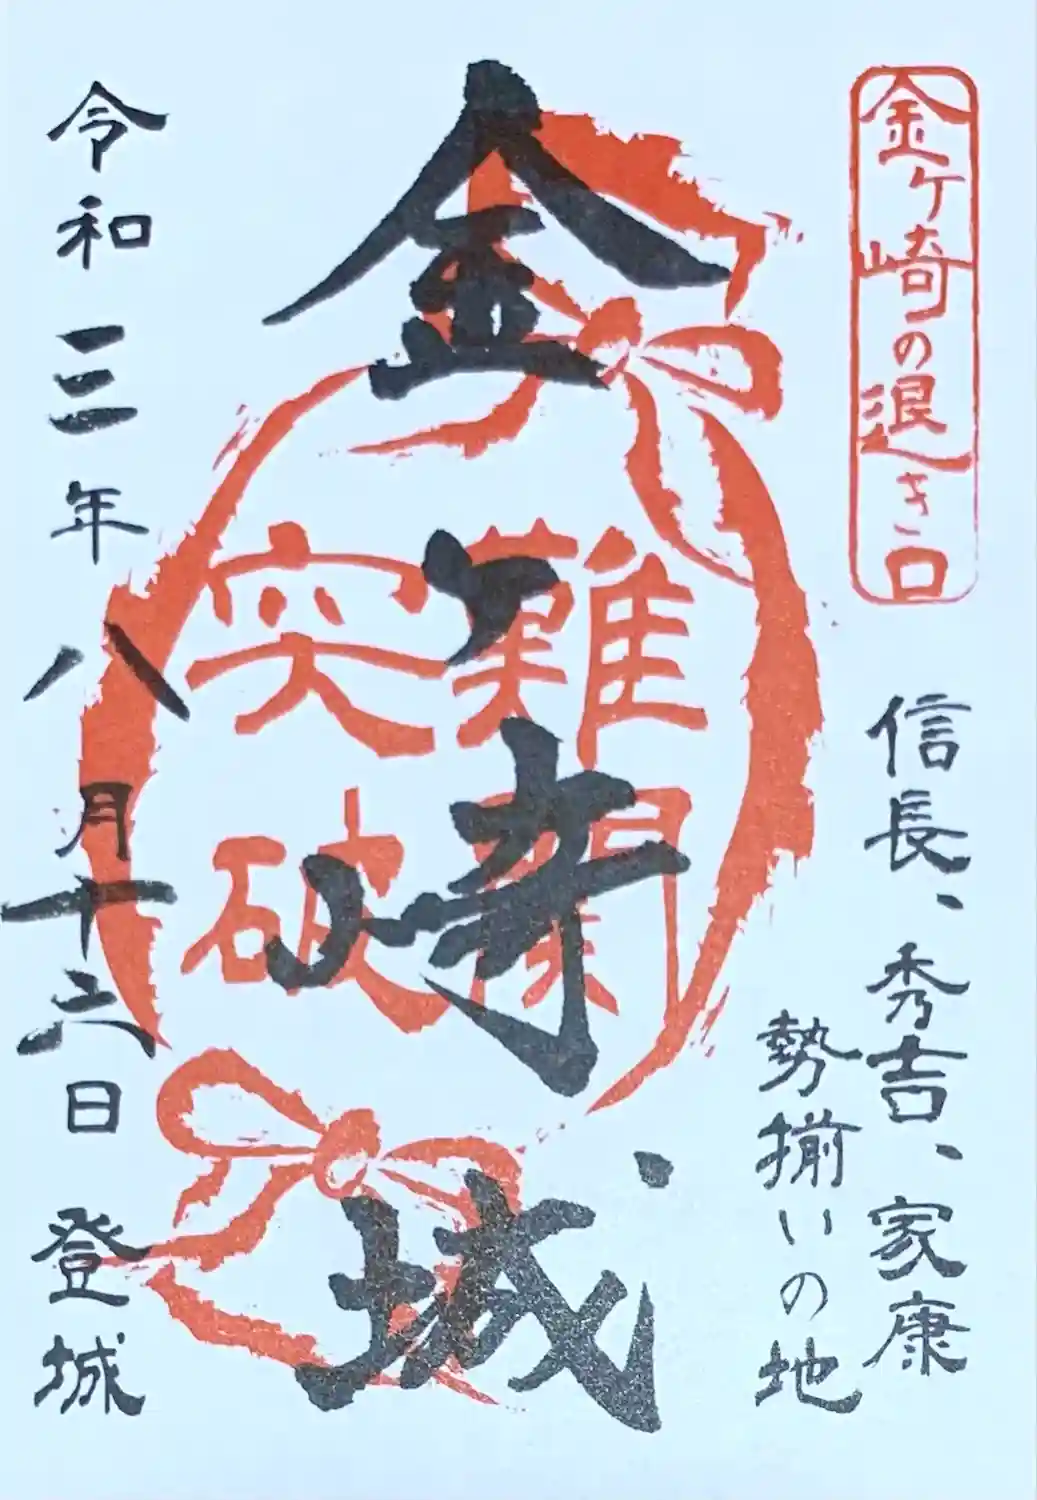 金ケ崎の退き口
信長、秀吉、家康
勢揃いの地
金ヶ崎城
難関
突破
令和三年八月十六日 登城